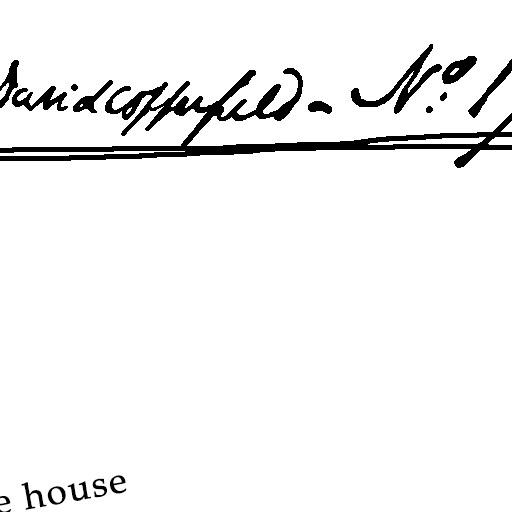 David Copperfield - No. 1
e house